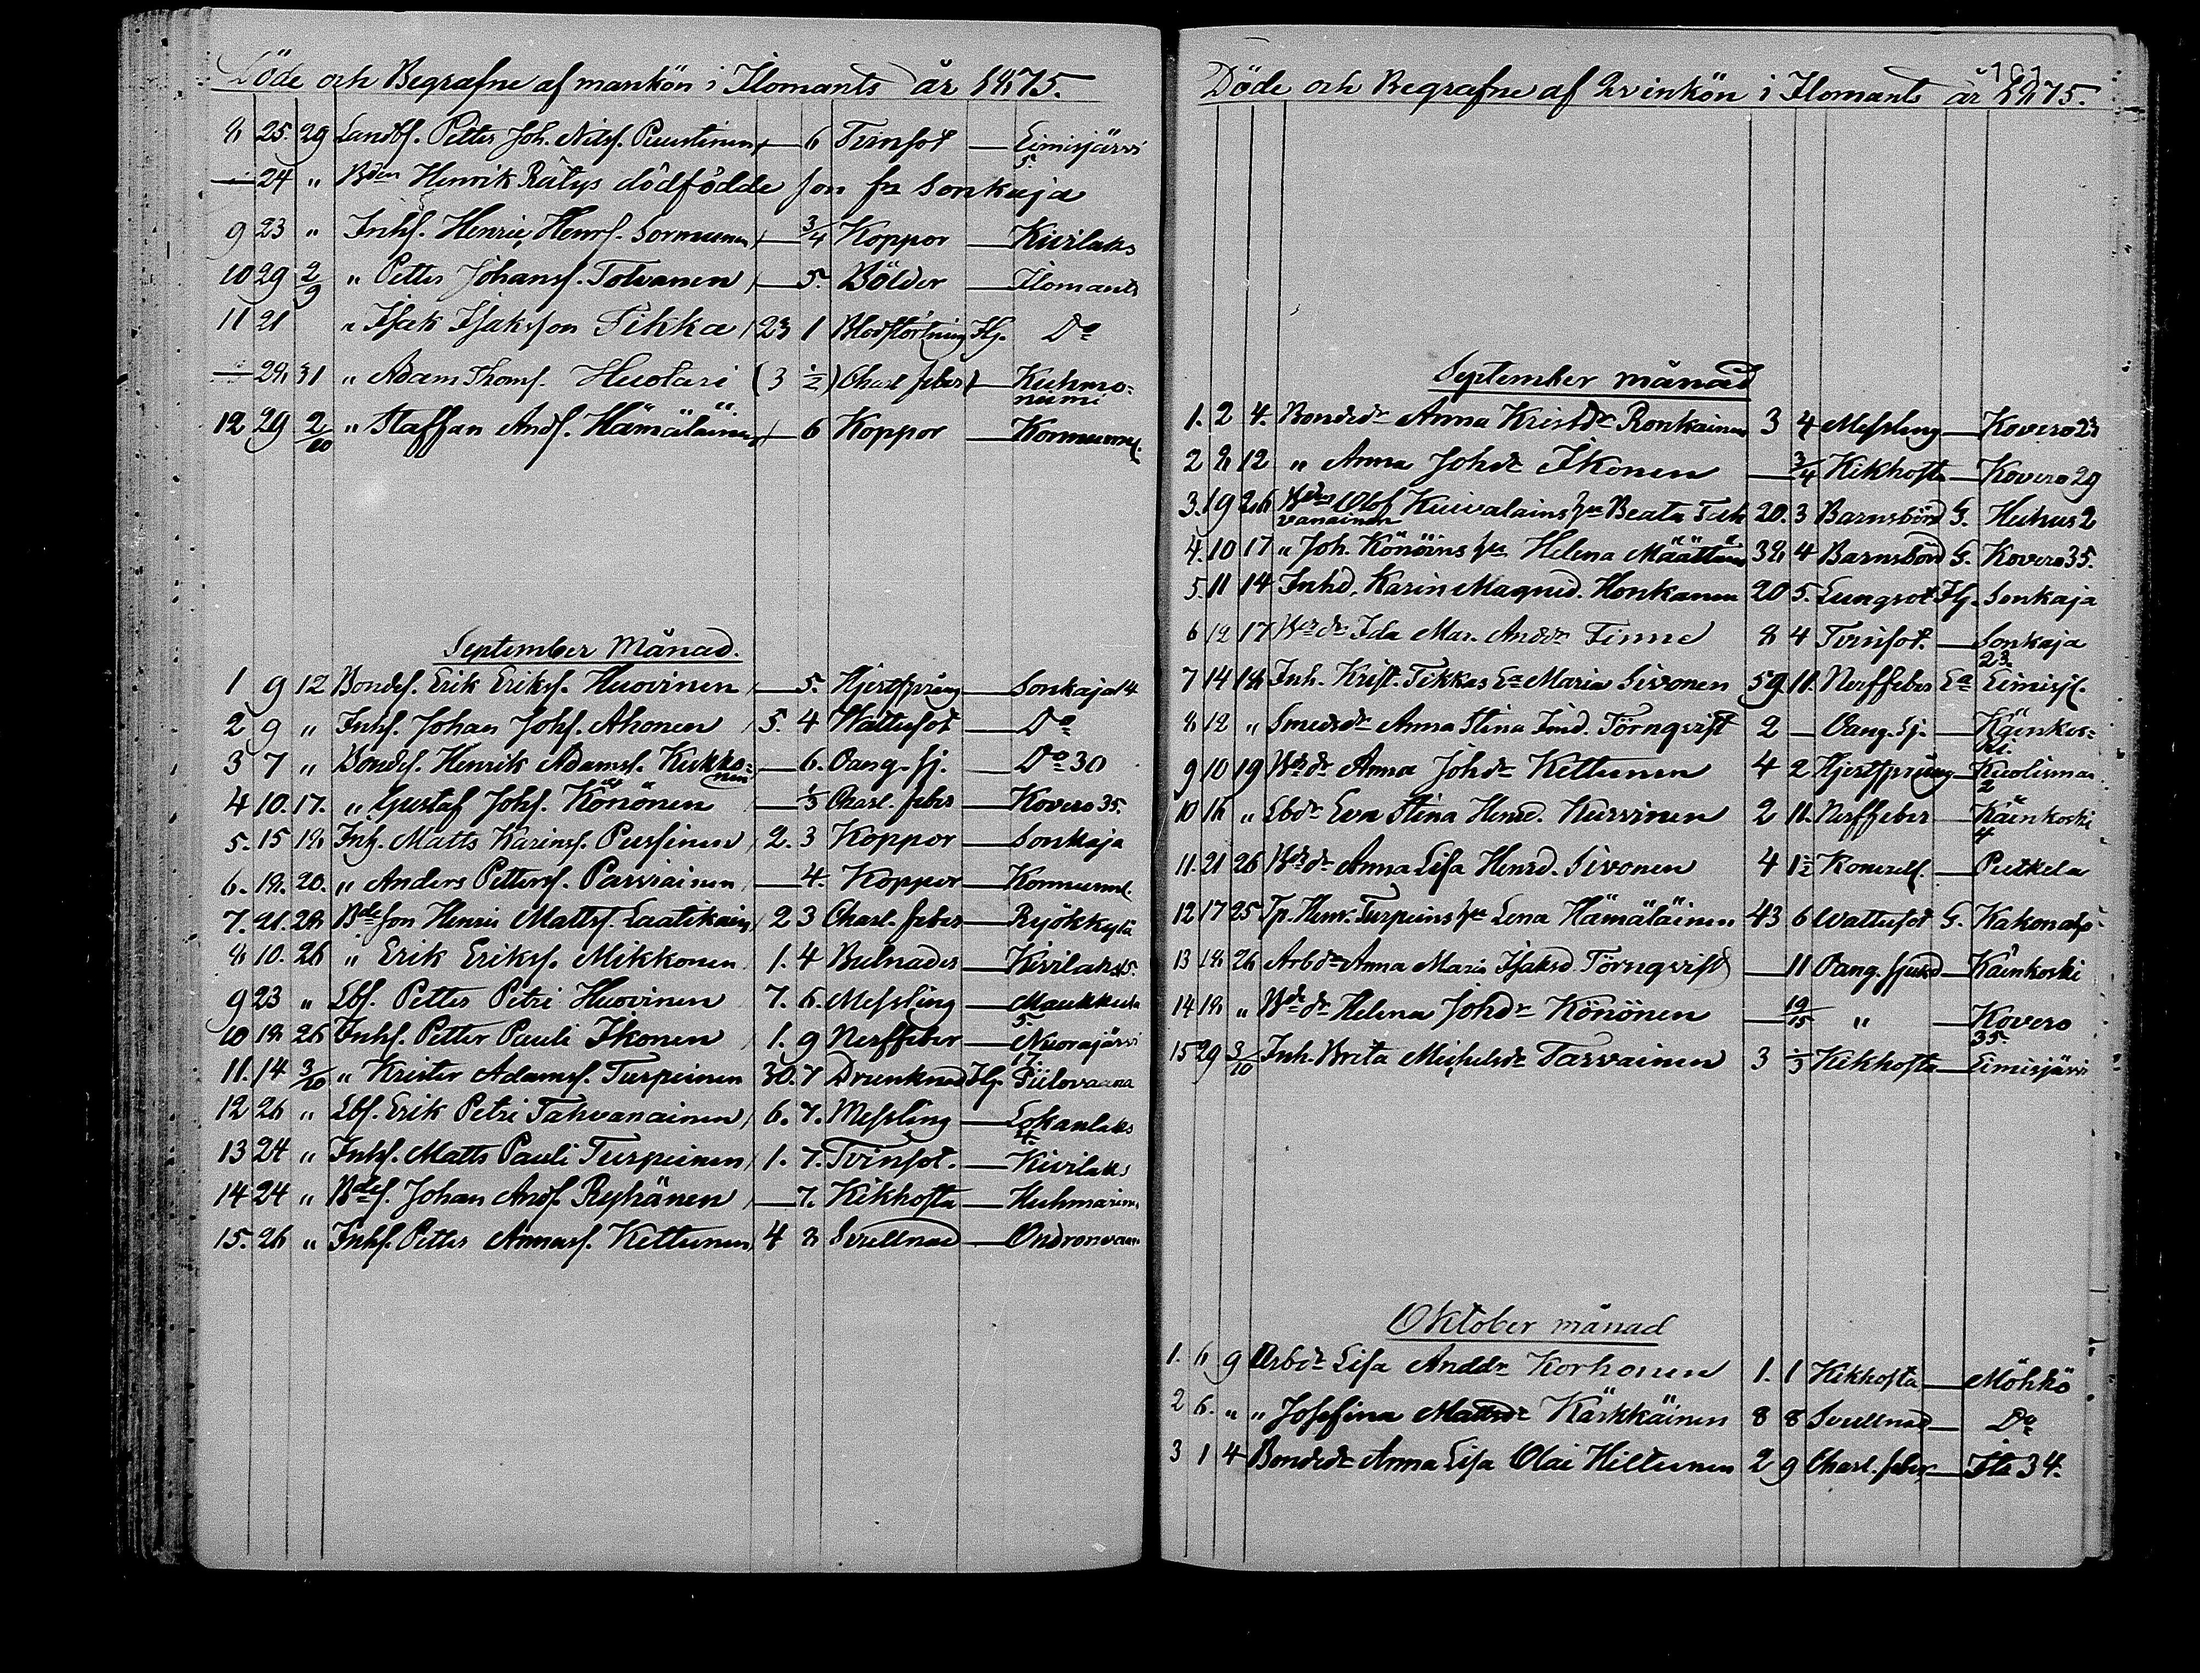 Döde och Begrafne af mankön i Ilomants år 1875.
8 25. 29 Landbs. Petter Joh. Nilss. Puustinen — 6 Tvinsot — Eimisjärvi 5.
— 24 " Bden Henrik Rätys dödfödde son fr Sonkaja
9 23 " Inhs. Henric Henrs. Sormunen — 3/4 Koppor — Kivilaks
10 29 2/9 " Petter Johanss. Tolvanen — 5. Bölder — Ilomants
11 21 " Isak Isaksson Tikka 23 1 Blodstörtning Hj. Do
— 28 31 " Adam Thoms. Huotari (3 1/2) Charl feber) — Kuhmoniemi
12 29 2/10 " Staffan Ands. Hämäläinen — 6 Koppor —
September Månad.
1 9 12 Bondes. Erik Erikss. Huovinen — 5. Hjertsprång — Sonkaja 14
2 9 " Inhs. Johan Johs. Ahonen 5. 4 Wattusot — Do
3 7 " Bondes. Henrik Adamss. Kukkonen — 6. Oang. sj. — Do 30
4 10. 17. " Gustaf Johs. Könönen — 1/3 Charl. feber — Kovero 35.
5. 15 18 Inh. Matts Karins. Pussinen 2. 3 Koppor — Sonkaja
6. 18. 20. " Anders Petterss. Parviainen — 4. Koppor —
7. 21. 28 Bdeson Henric Mattss. Laatikain 2 3 Charl. feber —
8 10. 26 " Erik Erikss. Mikkonen 1. 4 Bulnader — Kivilaks 15.
9 23 " Lbs. Petter Petri Huovinen 7. 6. Messling — Maukkula 5.
10 18 26 Inhs. Petter Pauli Ikonen 1. 9 Nerffeber — Nuorajärvi 17
11. 14 3/10 " Krister Adamss. Turpeinen 30. 7 Drunknad Hj. Piilovaara
12 26 " Lbs. Erik Petri Tahvanainen 6. 7. Messling — Lokanlaks 4.
13 24 " Inhs. Matts Pauli Turpeinen 1. 7. Tvinsot. — Kivilaks
14 24 " Bdes. Johan Ands. Ryhänen — 7. Kikhosta —
15. 26 " Inhs. Petter Annass. Kettunen 4 8 Svullnad —
Döde och Begrafne af Qvinkön i Ilomants år 1875.
September månad
1. 2 4. Bondedr Anna Kristdr Ronkainen 3 4 Messling — Kovero 23
2 8 12 " Anna Johdr Ikonen — 3/4 Kikhosta — Kovero 29
3. 19 26 Bdens Olof Kuivalains hu Beata Tahvanainen 20. 3 Barnsbörd G. Huhus 2
4. 10 17 " Joh. Könöins hu Helena Määttänen 38 4 Barnsbörd G. Kovero 35.
5. 11 14 Inhd. Karin Magnid. Honkanen 20 5. Lungsot Hj. Sonkaja
6 12 17 Bdedr Ida Mar. Anddr Timme 8 4 Tvinsot. — Sonkaja 23
7 14 18 Inh. Krist. Tikkas Ea Maria Sivonen 59 11. Nerffeber Ea Eimisj.
8 12 " Smededr Anna Stina Törnqvist 2 — Oang. sj. — Käenkoski
9 10 19 Bdedr Anna Johdr Kettunen 4 2 Hjertsprång — Kuolismaa 2
10 16 " Lbdr Eva Stina Henrd. Hurvinen 2 11. Nerffeber — Käenkoski 4
11. 21 26 Bdedr Anna Lisa Henrd. Sivonen 4 1 1/2 — Putkela
12 17 25 Tp. Henr. Turpeins hu Lena Hämäläinen 43 6 Wattusot G.
13 18 26 Arbdr Anna Maria Isaksd. Törnqvist — 11 Oang. sjukd — Käenkoski
14 18 " Bdedr Helena Johdr Könönen — 19/15 " — Kovero 35
15 29 3/10 Inh. Brita Michelsdr Tarvainen 3 1/3 Kikhosta — Eimisjärvi
Oktober månad
1. 6 9 Arbdr Lisa Anddr Korhonen 1. 1 Kikhosta — Möhkö
2 6. " " Josefina Mattsdr Kärkkäinen 8 8 Svullnad — Do
3 1 4 Bondedr Anna Lisa Olai Hiltunen 2 9 Charl. feber — Ilo 34.